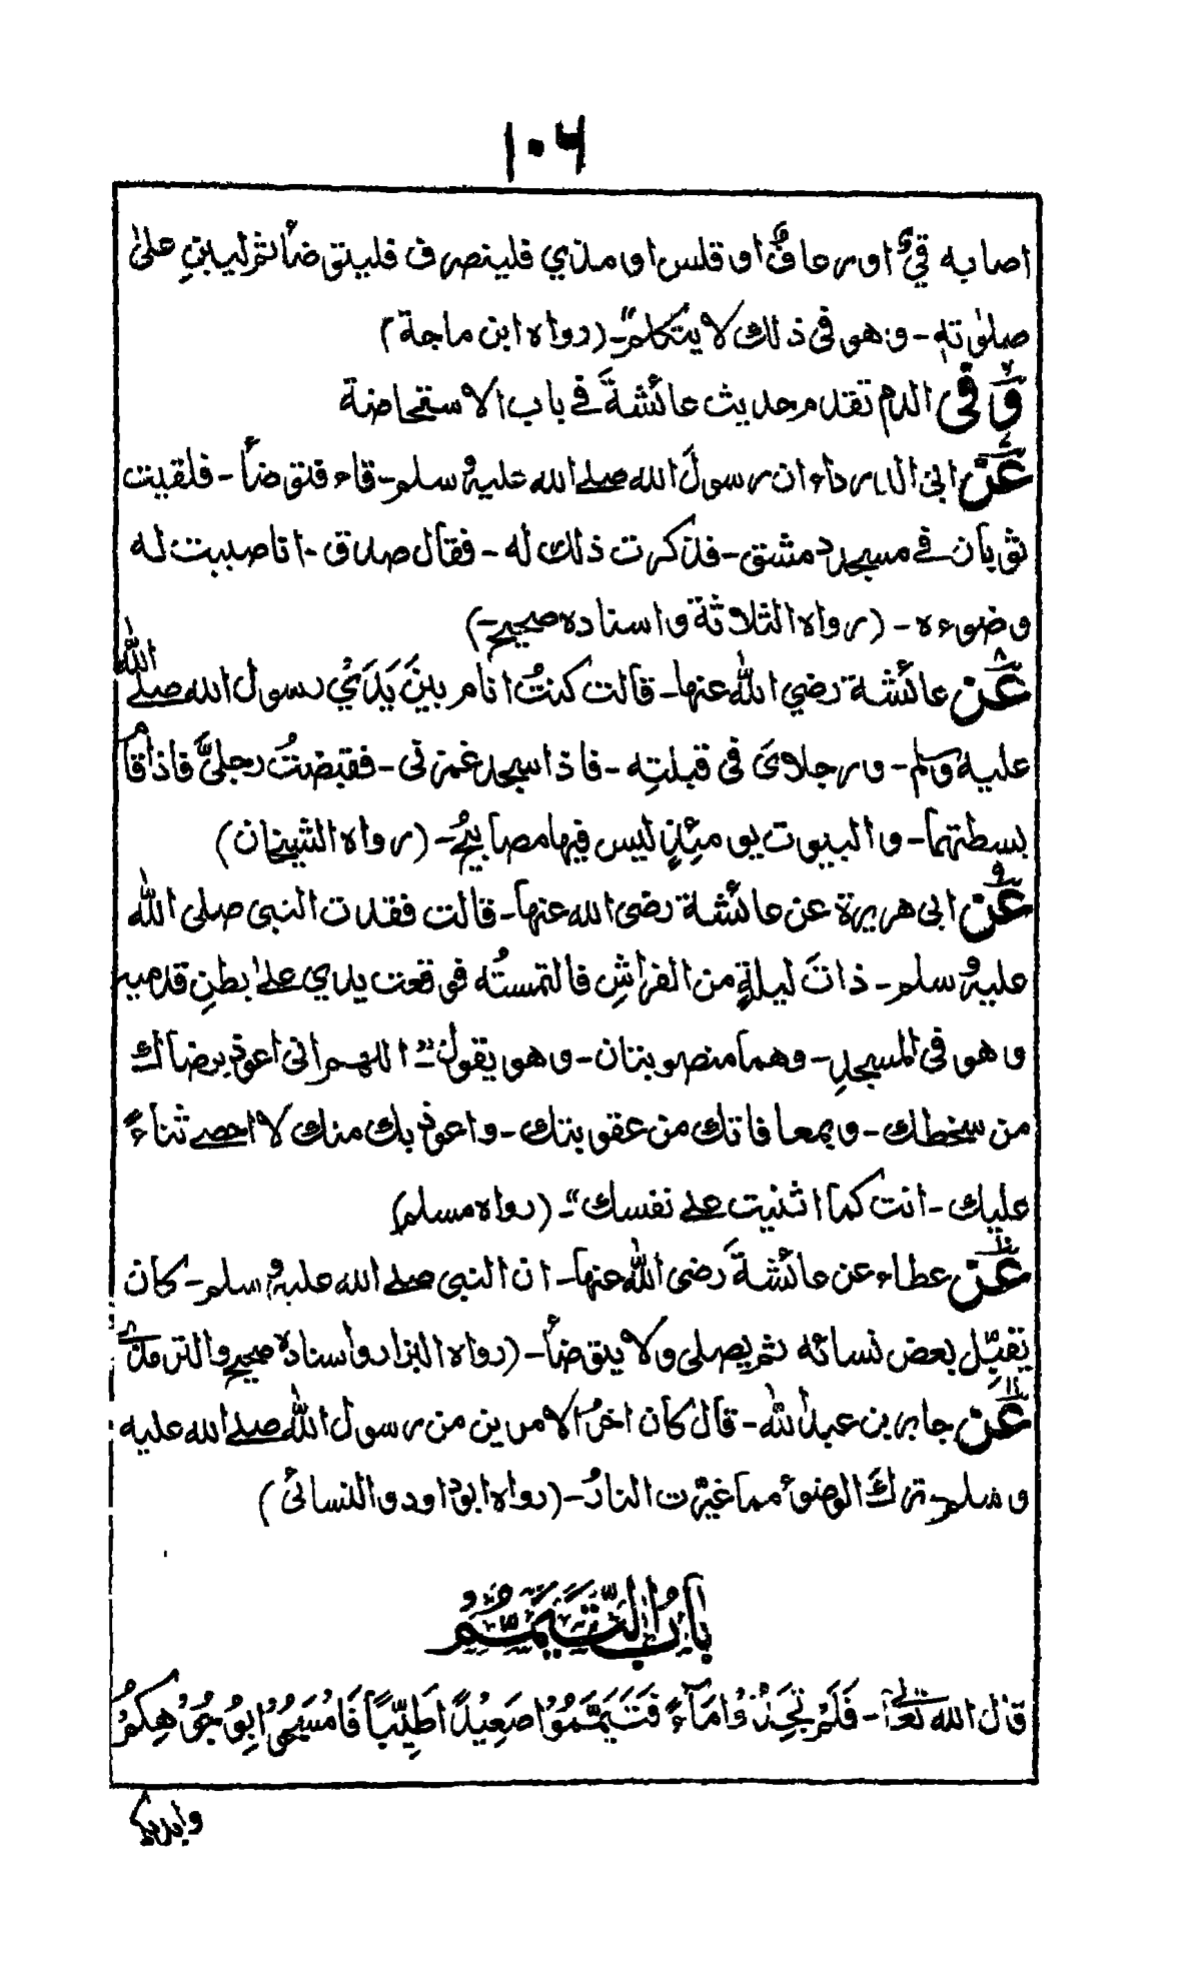 ١٠٦
اصابه قيءٌ او رعافٌ او قلس او مذي فلينصرف فليتوضأ ثم ليبنِ علىٰ
صلوٰته - وهو فى ذلك لا يتكلم" - (رواه ابن ماجة)
وَفى الدم تقدم حديث عائشةَ فے باب الاستحاضة
٧ عَنْ ابى الدرداء ان رسولَ الله صلے الله عليه وسلم - قاء فتوضأ - فلقيت
ثوبان فے مسجد دمشق - فذكرت ذلك له - فقال صدق - انا صببت له
وضوءه - (رواه الثلاثة واسناده صحيح -)
٨ عَنْ عائشة رضي اللهُ عنها - قالت كنتُ انام بينَ يَدَيْ رسول الله صلے الله
عليه وسلم - ورجلاىَ فى قبلتِه - فاذا سجد غمزنى - فقبضتُ رجليَّ فاذا قام
بسطتهما - والبيوت يومئِذٍ ليس فيها مصابيحُ - (رواه الشيخان)
٩ عَنْ ابى هريرة عن عائشة رضى الله عنها - قالت فقدت النبى صلى الله
عليه وسلم - ذاتَ ليلةٍ من الفراشِ فالتمستُه فوقعت يدي علىٰ بطنِ قدميه
وهو فى المسجدِ - وهما منصوبتان - وهو يقول "اللهم انى اعوذ برضاك
من سخطك - وبمعافاتك من عقوبتك - واعوذ بك منك لا احصے ثناءً
عليك - انت كما اثنيت علے نفسك" - (رواه مسلم)
١٠ عَنْ عطاء عن عائشةَ رضى اللهُ عنها - ان النبى صلے الله عليه وسلم - كان
يقبِّل بعض نسائه ثم يصلى ولا يتوضأ - (رواه البزار واسناده صحيح والترمذي)
١١ عَنْ جابر بن عبد الله - قال كان اخرُ الامرين من رسول الله صلے الله عليه
وسلم - تركَ الوضوء مما غيّرت النارُ - (رواه ابو داود والنسائى)
بابُ التَّيَمُّمِ
قال الله تعالىٰ - فَلَمْ تَجِدُوْا مَآءً فَتَيَمَّمُوْا صَعِيْدًا طَيِّبًا فَامْسَحُوْا بِوُجُوْهِكُمْ
وايديكم